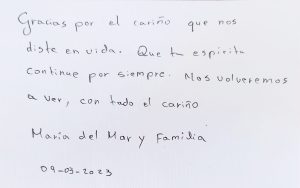 Gracias por el cariño que nos
diste en vida. Que tu espiritu
continue por siempre. Nos volveremos
a ver, con todo el cariño
Maria del Mar y Familia
09-03-2023